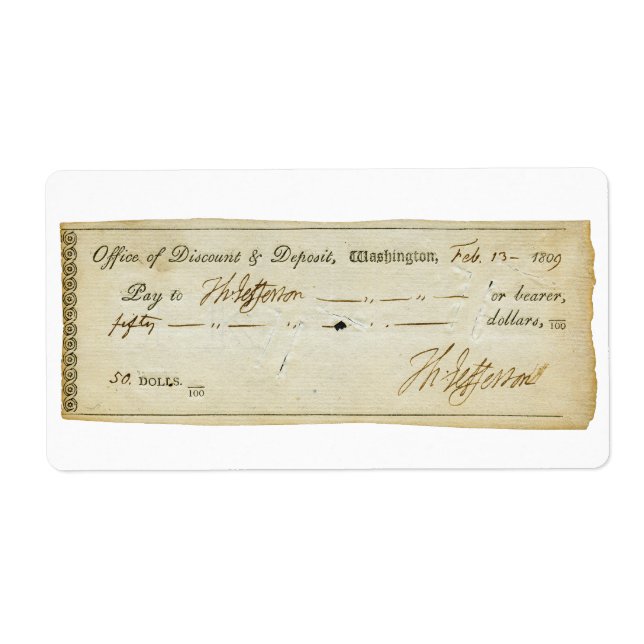 Office of Discount & Deposit, Washington, Feb. 13 – 1809
Pay to Th. Jefferson — „ — „ — or bearer,
fifty — „ — „ — . . — dollars, /100
50. DOLLS. /100
Th. Jefferson